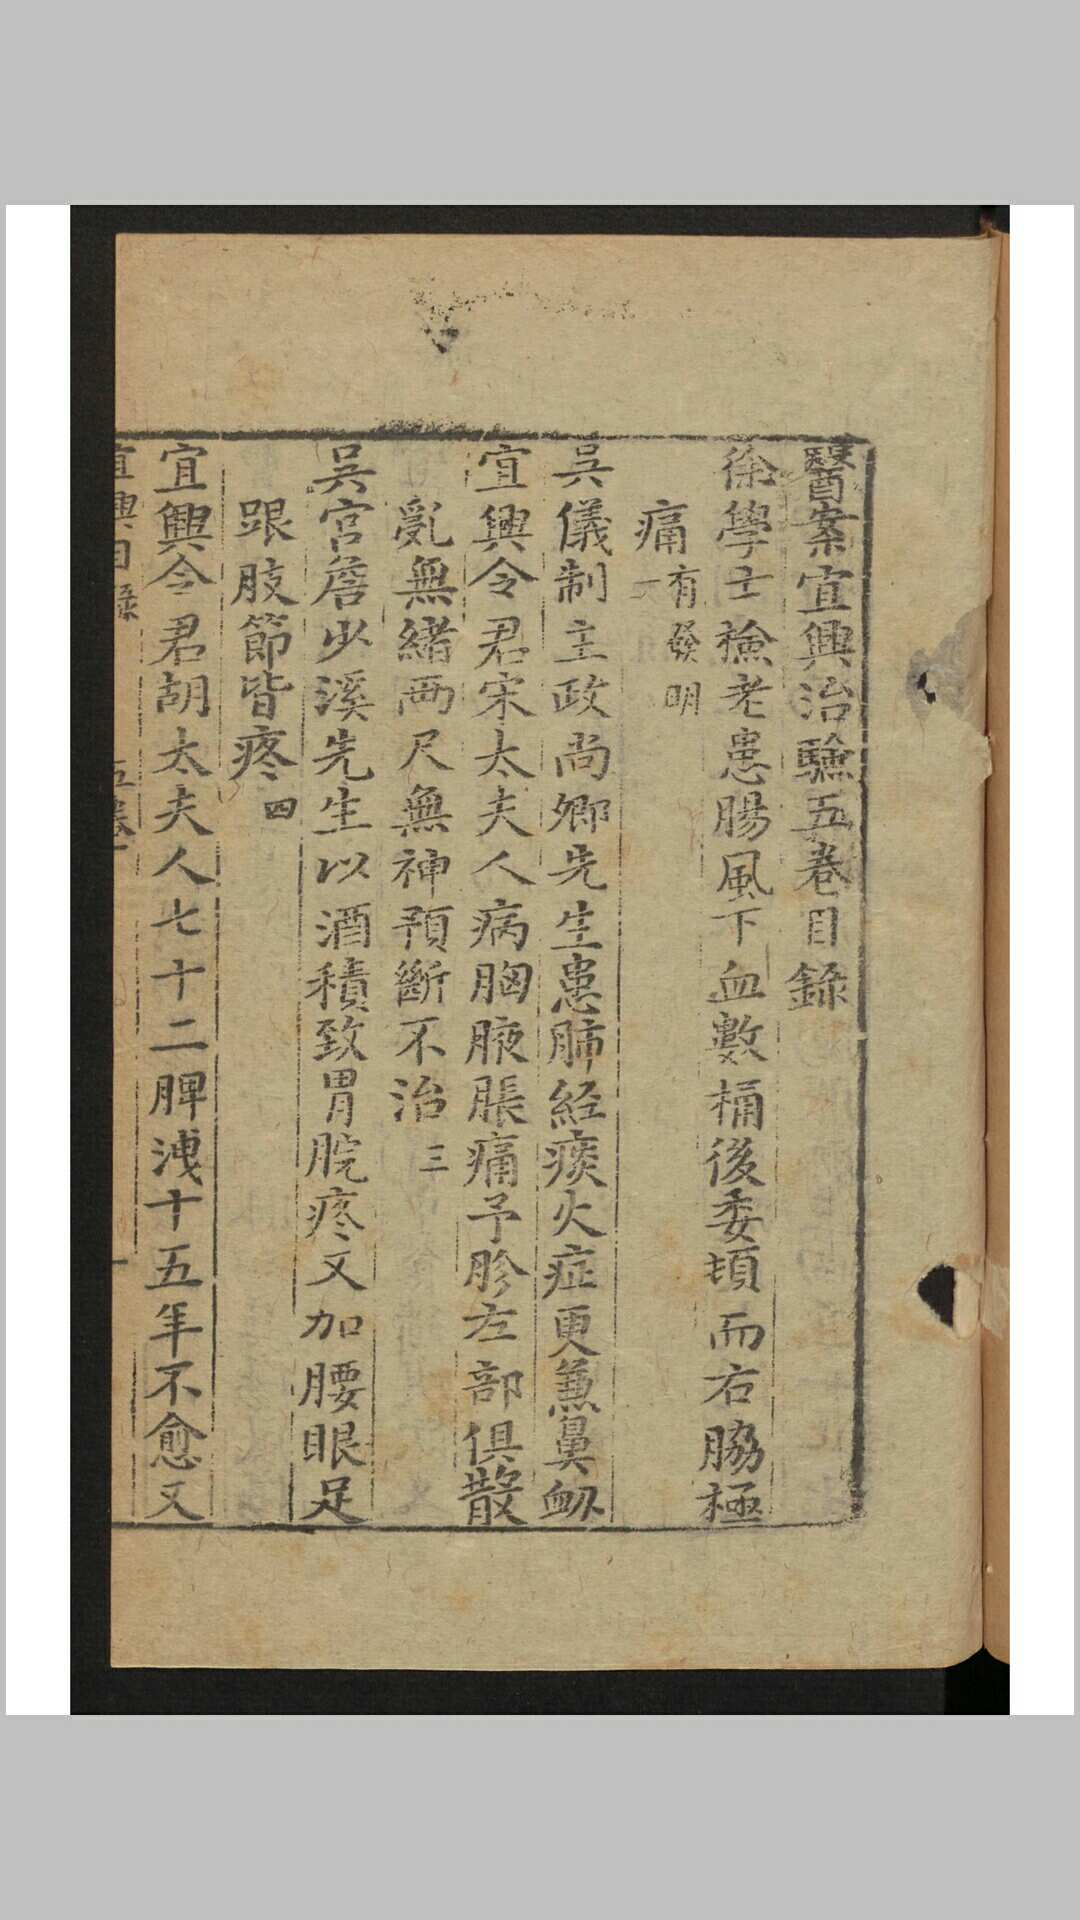 醫案宜興治驗五卷目錄
徐學士檢老患腸風下血數桶後委頓而右脇極
痛有發明一
吳儀制主政尚鄉先生患肺經痰火症更蒹鼻衂
宜興令君宋太夫人病胸腋脹痛予胗左部俱散
亂無緒両尺無神預斷不治三
吳宮詹少溪先生以酒積致胃脘疼又加腰眼足
跟肢節皆疼四
宜興令君胡太夫人七十二脾洩十五年不愈又
宜興目錄 五卷 一